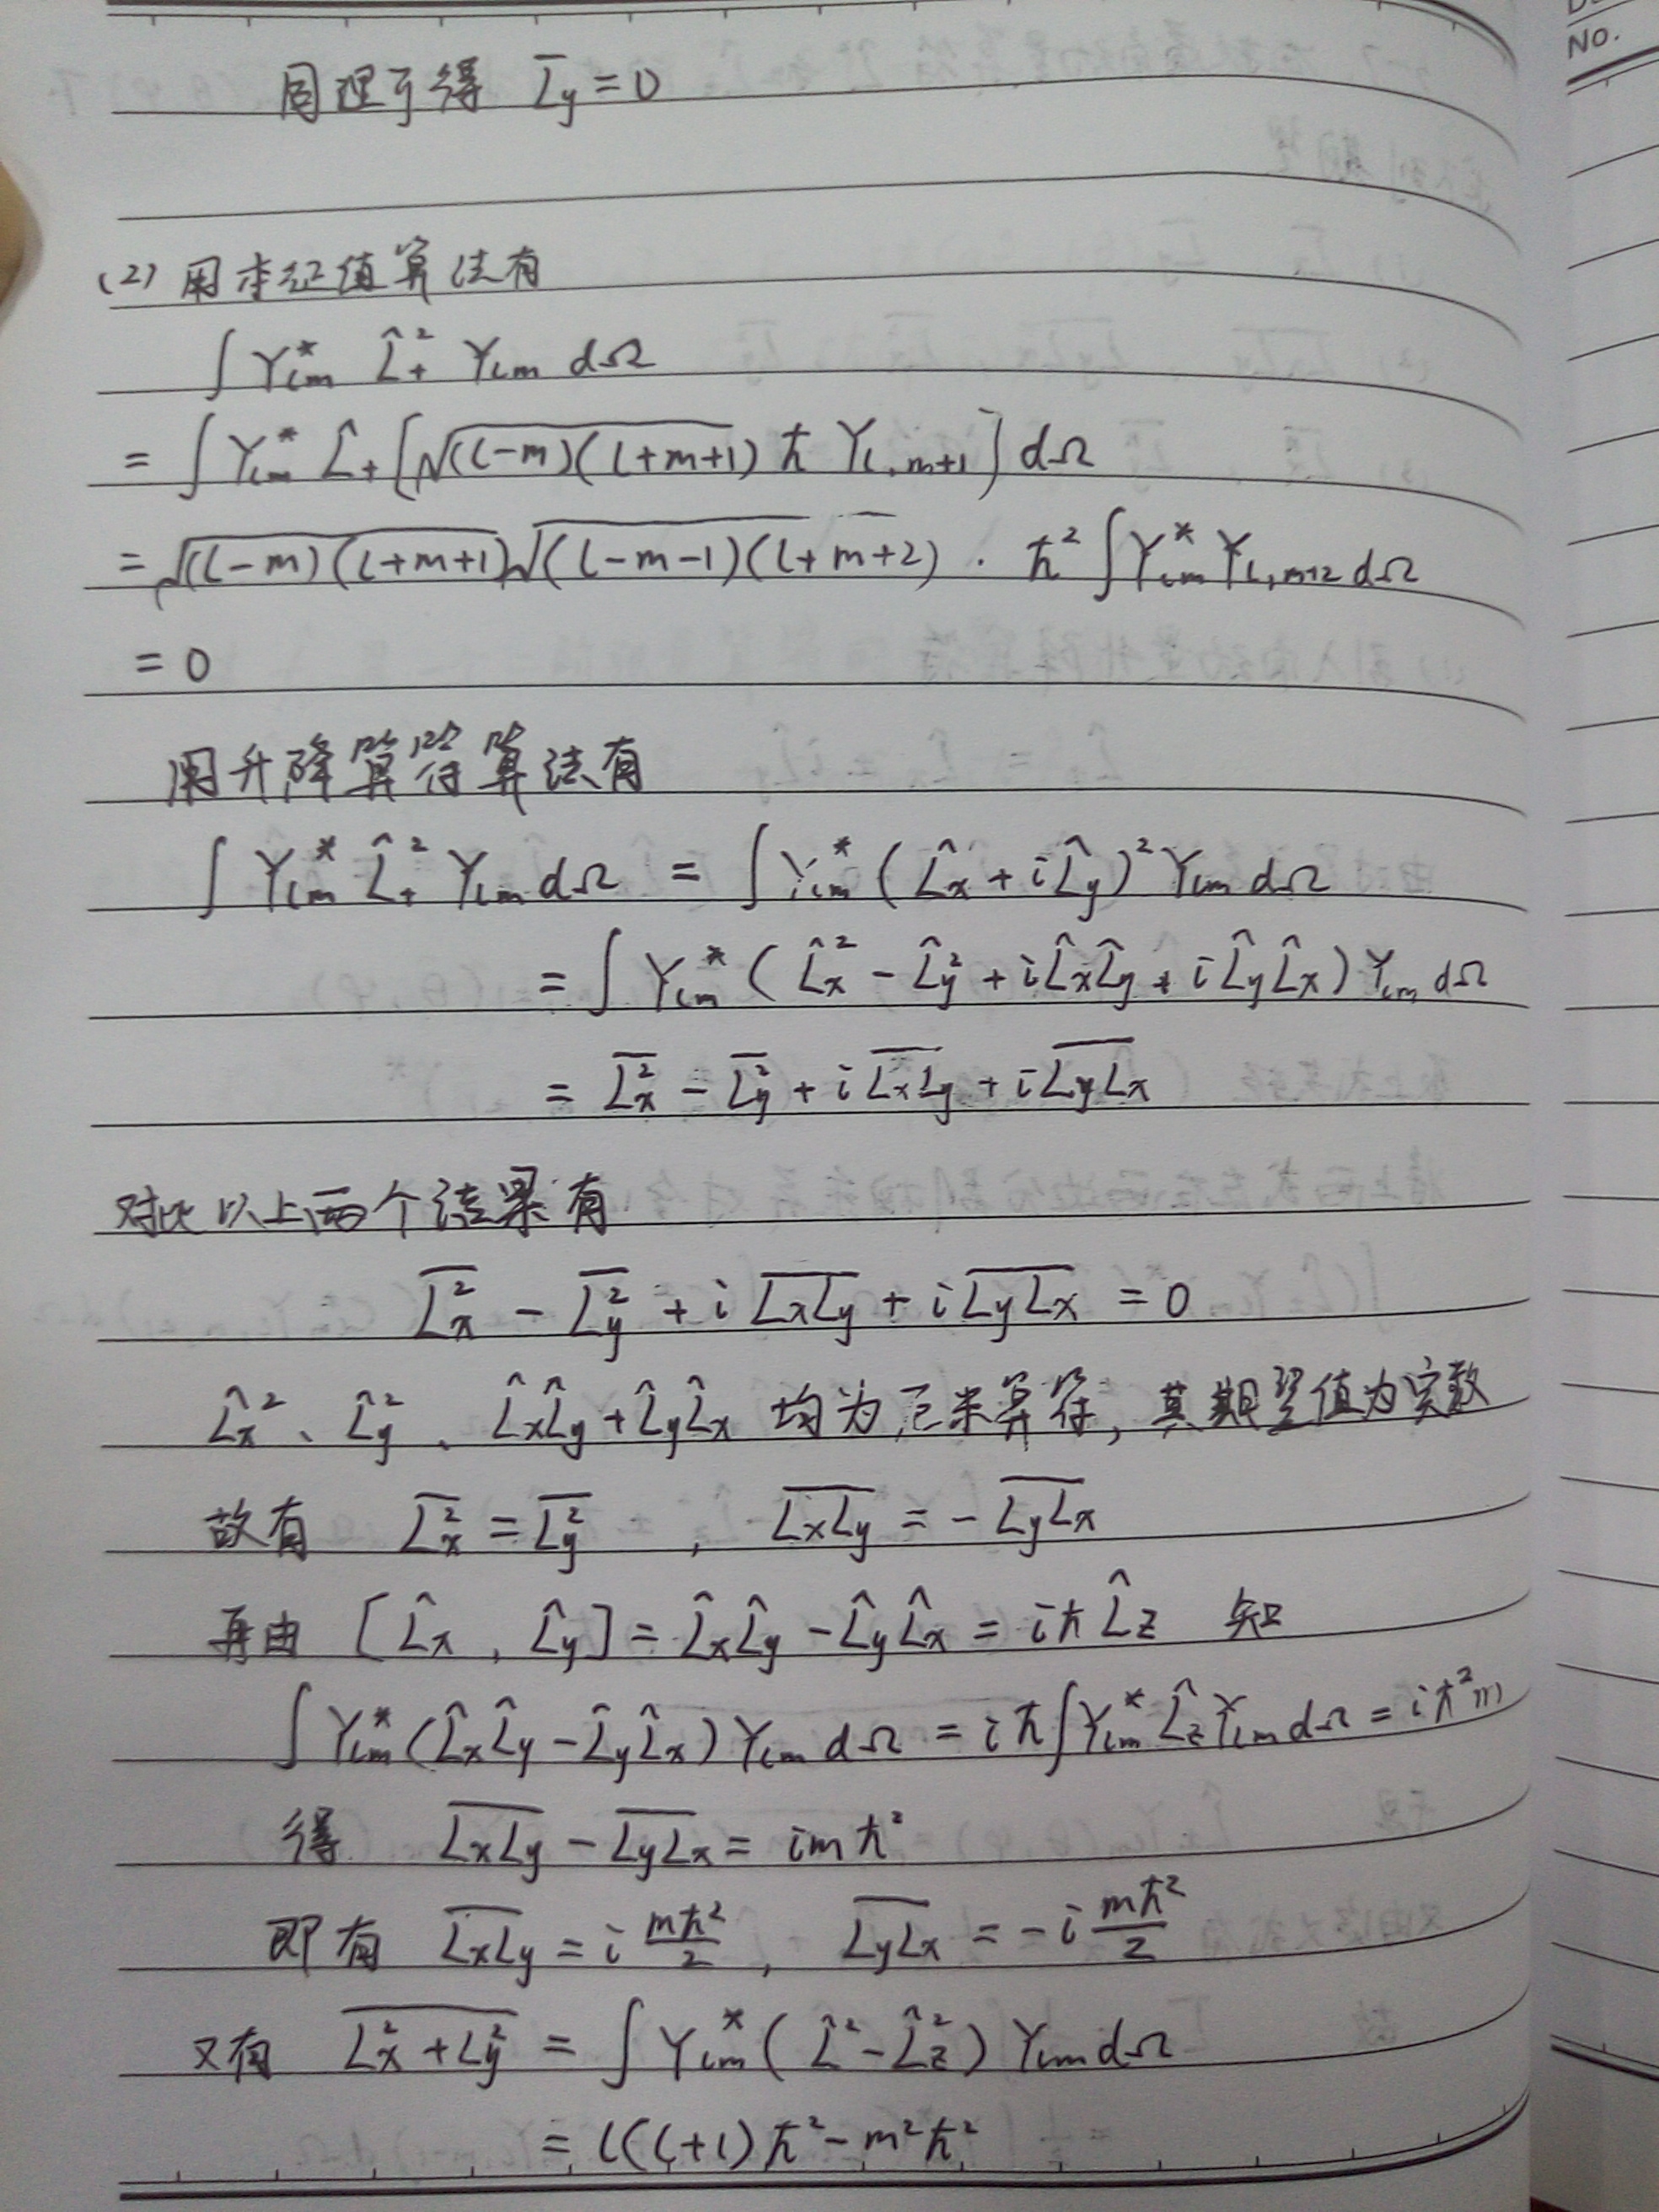 No.
同理可得 L̄y = 0
(2) 用本征值算法有
∫ Y*lm L̂+² Ylm dΩ
= ∫ Y*lm L̂+ [√(l-m)(l+m+1) ħ Yl,m+1] dΩ
= √(l-m)(l+m+1) √(l-m-1)(l+m+2) · ħ² ∫ Y*lm Yl,m+2 dΩ
= 0
用升降算符算法有
∫ Y*lm L̂+² Ylm dΩ = ∫ Y*lm (L̂x + iL̂y)² Ylm dΩ
= ∫ Y*lm (L̂x² - L̂y² + iL̂xL̂y + iL̂yL̂x) Ylm dΩ
= \overline{Lx²} - \overline{Ly²} + i\overline{LxLy} + i\overline{LyLx}
对比以上两个结果有
\overline{Lx²} - \overline{Ly²} + i\overline{LxLy} + i\overline{LyLx} = 0
L̂x²、L̂y²、L̂xL̂y + L̂yL̂x 均为厄米算符, 其期望值为实数
故有 \overline{Lx²} = \overline{Ly²} , \overline{LxLy} = -\overline{LyLx}
再由 [L̂x , L̂y] = L̂xL̂y - L̂yL̂x = iħL̂z 知
∫ Y*lm (L̂xL̂y - L̂yL̂x) Ylm dΩ = iħ ∫ Y*lm L̂z Ylm dΩ = iħ²m
得 \overline{LxLy} - \overline{LyLx} = imħ²
即有 \overline{LxLy} = i mħ²/2 , \overline{LyLx} = -i mħ²/2
又有 \overline{Lx² + Ly²} = ∫ Y*lm (L̂² - L̂z²) Ylm dΩ
= l(l+1)ħ² - m²ħ²